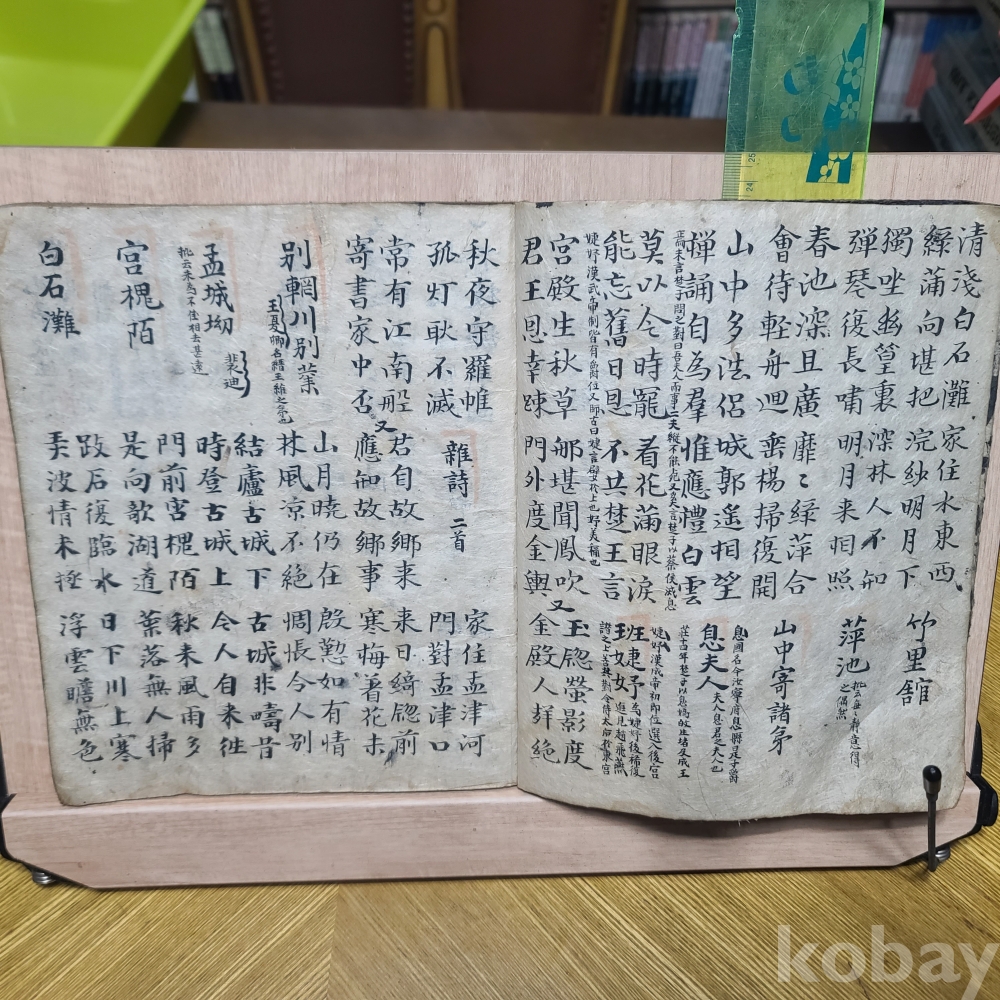 清淺白石灘 家住水東西
綠蒲向堪把 浣紗明月下 竹里舘
獨坐幽篁裏 深林人不知
彈琴復長嘯 明月来相照 萍池
春池深且廣 靡〻綠萍合
會待軽舟迴 垂楊掃復開 山中寄諸弟
山中多法侶 城郭遥相望
禅誦自為羣 惟應禮白雲 息夫人 夫人息君之夫人也
莫以今時寵 看花滿眼淚
能忘舊日恩 不共楚王言 班婕妤
婕妤漢武帝制皆有爵位
宮殿生秋草 那堪聞鳳吹 又 玉窓螢影度
君王恩幸踈 門外度金輿 金殿人聲絶
秋夜守羅帷 雜詩 二首 家住孟津河
孤灯耿不滅 門對孟津口
常有江南舡 又 君自故鄉来 来日綺窓前
寄書家中否 應知故鄉事 寒梅着花未
別輞川別業 山月暁仍在 慇懃如有情
王夏卿名縉王維之弟也 林風凉不絶 惆悵今人別
孟城坳 裴迪 結廬古城下 古城非疇昔
時登古城上 今人自来徃
宮槐陌 門前宮槐陌 秋来風雨多
是向歌湖道 葉落無人掃
白石灘 跂石復臨水 日下川上寒
弄波情未極 浮雲澹無色
kobay